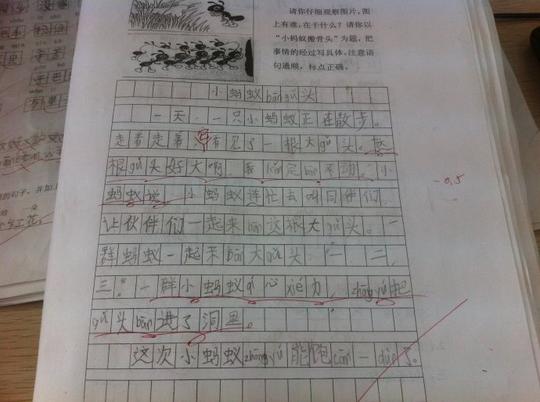 请你仔细观察图片，图
上有谁，在干什么？请你以
“小蚂蚁搬骨头”为题，把
事情的经过写具体，注意语
句通顺，标点正确。
小蚂蚁bān gǔ头
一天，一只小蚂蚁正在散步。
走着走着，看见了一根大gǔ头。
根gǔ头好大啊
蚂蚁说。小蚂蚁连忙去叫同伴们，
让伙伴们一起来bān这根大gǔ头。一
群蚂蚁一起来bān大gǔ头，“一、二、
三！”一群小蚂蚁qí心xié力，zhōng yú把
gǔ头bān进了洞里。
这次小蚂蚁zhōng yú能饱cān一dùn了。
-0.5